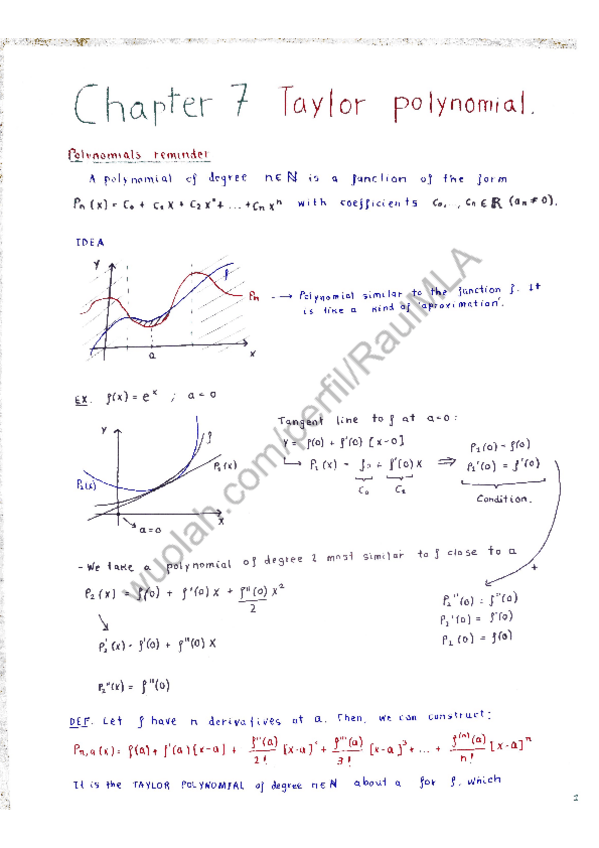 Chapter 7 Taylor polynomial.
Polynomials reminder
A polynomial of degree n∈ℕ is a function of the form
Pn(x) = C₀ + C₁x + C₂x² + ... + Cnxⁿ with coefficients C₀,..,Cn ∈ ℝ (an ≠ 0).
IDEA
y
f
Pn → Polynomial similar to the function f. It
is like a kind of 'aproximation'.
a
x
EX. f(x) = eˣ ; a = 0
Tangent line to f at a=0:
y = f(0) + f'(0) [x-0]
P₁(x) = f(0) + f'(0) x ⟹ P₁(0) = f(0)
P₁'(0) = f'(0)
C₀ C₁
Condition.
y
f
P₁(x)
P₂(x)
x
a=0
- We take a polynomial of degree 2 most similar to f close to a
P₂(x) = f(0) + f'(0) x + f''(0)/2 x²
+
P₂''(0) = f''(0)
P₂'(0) = f'(0)
P₂(0) = f(0)
P₂'(x) = f'(0) + f''(0) x
P₂''(x) = f''(0)
DEF. Let f have n derivatives at a. Then, we can construct:
Pn,a(x) = f(a) + f'(a)[x-a] + f''(a)/2! [x-a]² + f'''(a)/3! [x-a]³ + ... + f⁽ⁿ⁾(a)/n! [x-a]ⁿ
It is the TAYLOR POLYNOMIAL of degree n∈ℕ about a for f, which
wuolah.com/perfil/RaulMLA